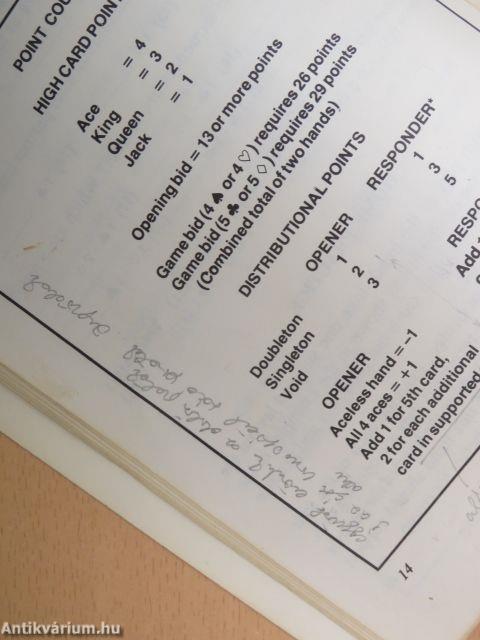 POINT COU
HIGH CARD POIN
Ace = 4
King = 3
Queen = 2
Jack = 1
Opening bid = 13 or more points
Game bid (4 ♠ or 4 ♡) requires 26 points
Game bid (5 ♣ or 5 ♢) requires 29 points
(Combined total of two hands)
DISTRIBUTIONAL POINTS
OPENER RESPONDER*
Doubleton 1 1
Singleton 2 3
Void 3 5
OPENER RESPO
Aceless hand = -1 Add 1
All 4 aces = +1
Add 1 for 5th card,
2 for each additional
card in supported
14
Antikvárium.hu